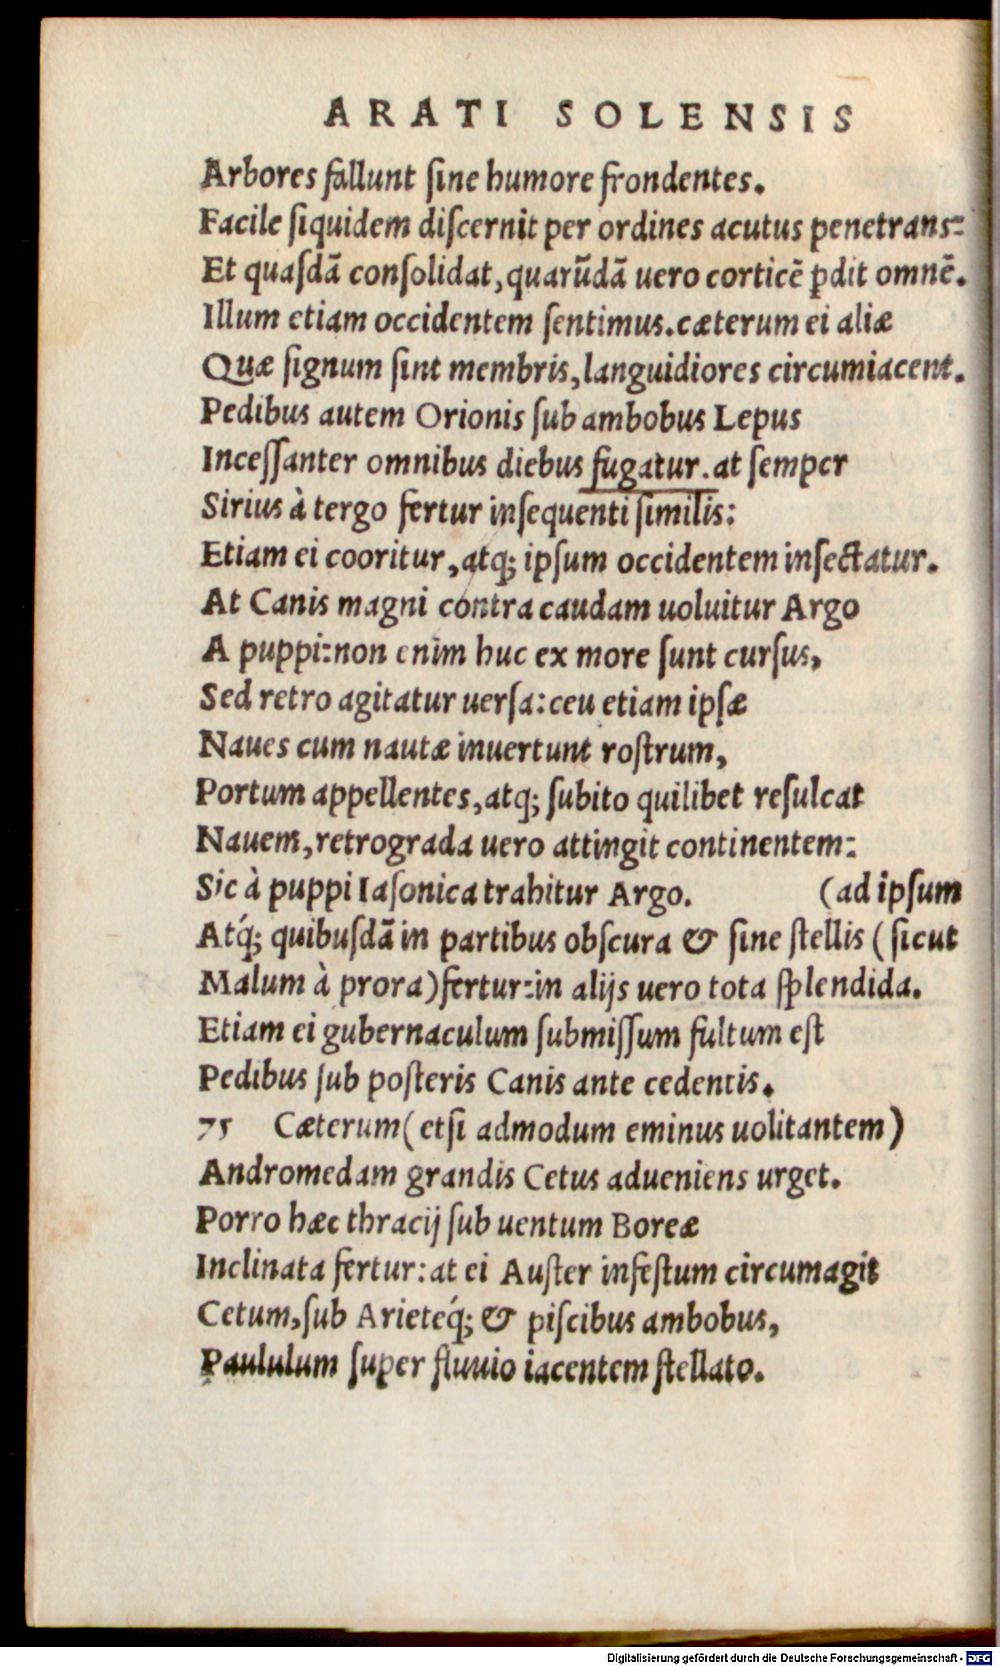 ARATI SOLENSIS
Arbores fallunt ſine humore frondentes.
Facile ſiquidem diſcernit per ordines acutus penetrans:
Et quaſdā conſolidat, quarūdā uero corticē ꝑdit omnē.
Illum etiam occidentem ſentimus. cæterum ei aliæ
Quæ ſignum ſint membris, languidiores circumiacent.
Pedibus autem Orionis ſub ambobus Lepus
Inceſſanter omnibus diebus fugatur. at ſemper
Sirius à tergo fertur inſequenti ſimilis:
Etiam ei cooritur, atq; ipſum occidentem inſectatur.
At Canis magni contra caudam uoluitur Argo
A puppi: non enim huc ex more ſunt curſus,
Sed retro agitatur uerſa: ceu etiam ipſæ
Naues cum nautæ inuertunt roſtrum,
Portum appellentes, atq; ſubito quilibet reſulcat
Nauem, retrograda uero attingit continentem:
Sic à puppi Iaſonica trahitur Argo. (ad ipſum
Atq́; quibuſdā in partibus obſcura & ſine ſtellis (ſicut
Malum à prora) fertur: in alijs uero tota ſplendida.
Etiam ei gubernaculum ſubmiſſum fultum eſt
Pedibus ſub poſteris Canis ante cedentis.
75 Cæterum (etſi admodum eminus uolitantem)
Andromedam grandis Cetus adueniens urget.
Porro hæc thracij ſub uentum Boreæ
Inclinata fertur: at ei Auſter infeſtum circumagit
Cetum, ſub Arieteq́; & piſcibus ambobus,
Paululum ſuper fluuio iacentem ſtellato.
Digitalisierung gefördert durch die Deutsche Forschungsgemeinschaft - DFG